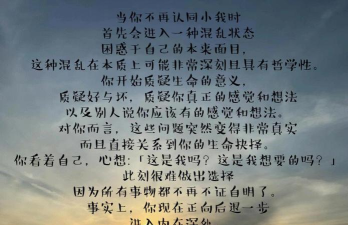 当你不再认同小我时
首先会进入一种混乱状态
困惑于自己的本来面目，
这种混乱在本质上可能非常深刻且具有哲学性。
你开始质疑生命的意义，
质疑好与坏，质疑你真正的感觉和想法
以及别人说你应该有的感觉和想法。
对你而言，这些问题突然变得非常真实
而且直接关系到你的生命抉择。
你看着自己，心想:「这是我吗？这是我想要的吗？」
此刻很难做出选择
因为所有事物都不再不证自明了。
事实上，你现在正向后退一步
进入内在深处